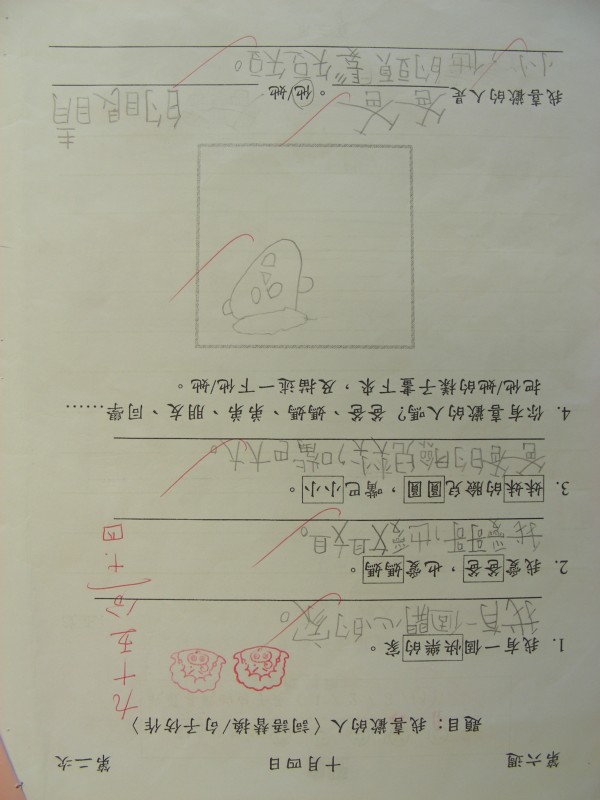 第六週 十月四日 第二次
題目：我喜歡的人〈詞語替換/句子仿作〉
1. 我有一個快樂的家。
我有一個開心的家。
2. 我愛爸爸，也愛媽媽。
我愛哥哥，也愛姐姐。
3. 妹妹的臉兒圓圓，嘴巴小小。
爸爸的臉兒尖尖，嘴巴大大。
4. 你有喜歡的人嗎？爸爸、媽媽、弟弟、朋友、同學……
把他/她的樣子畫下來，及描述一下他/她。
我喜歡的人是爸爸。他/她的眼睛
小小，他的頭髮短短。
九十五分
十.四